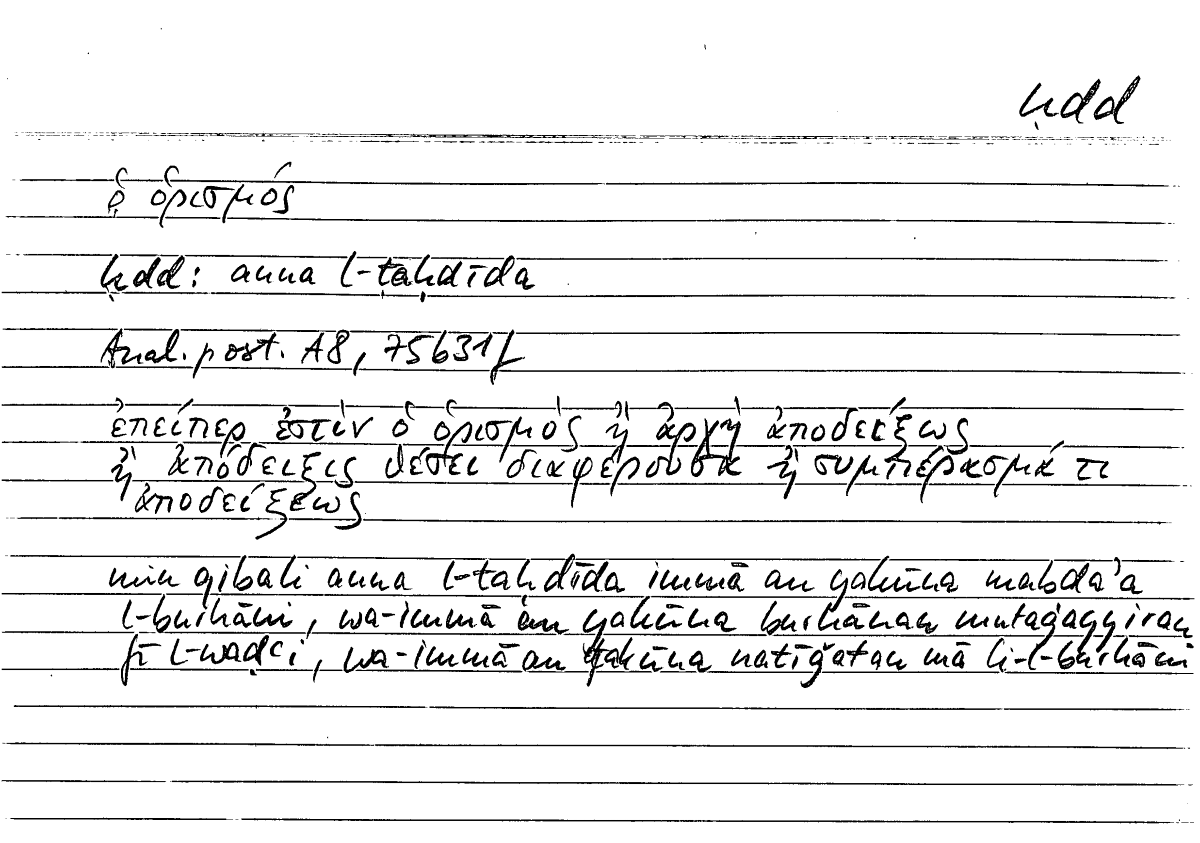 ḥdd
ὁ ὁρισμός
ḥdd: anna l-taḥdīda
Anal. post. A8, 75b31f
ἐπείπερ ἐστὶν ὁ ὁρισμὸς ἢ ἀρχὴ ἀποδείξεως
ἢ ἀπόδειξις θέσει διαφέρουσα ἢ συμπέρασμά τι
ἀποδείξεως
min qibali anna l-taḥdīda immā an yakūna mabda'a
l-burhāni, wa-immā an yakūna burhānan mutaġayyiran
fī l-waḍʿi, wa-immā an yakūna natīǧatan mā li-l-burhāni